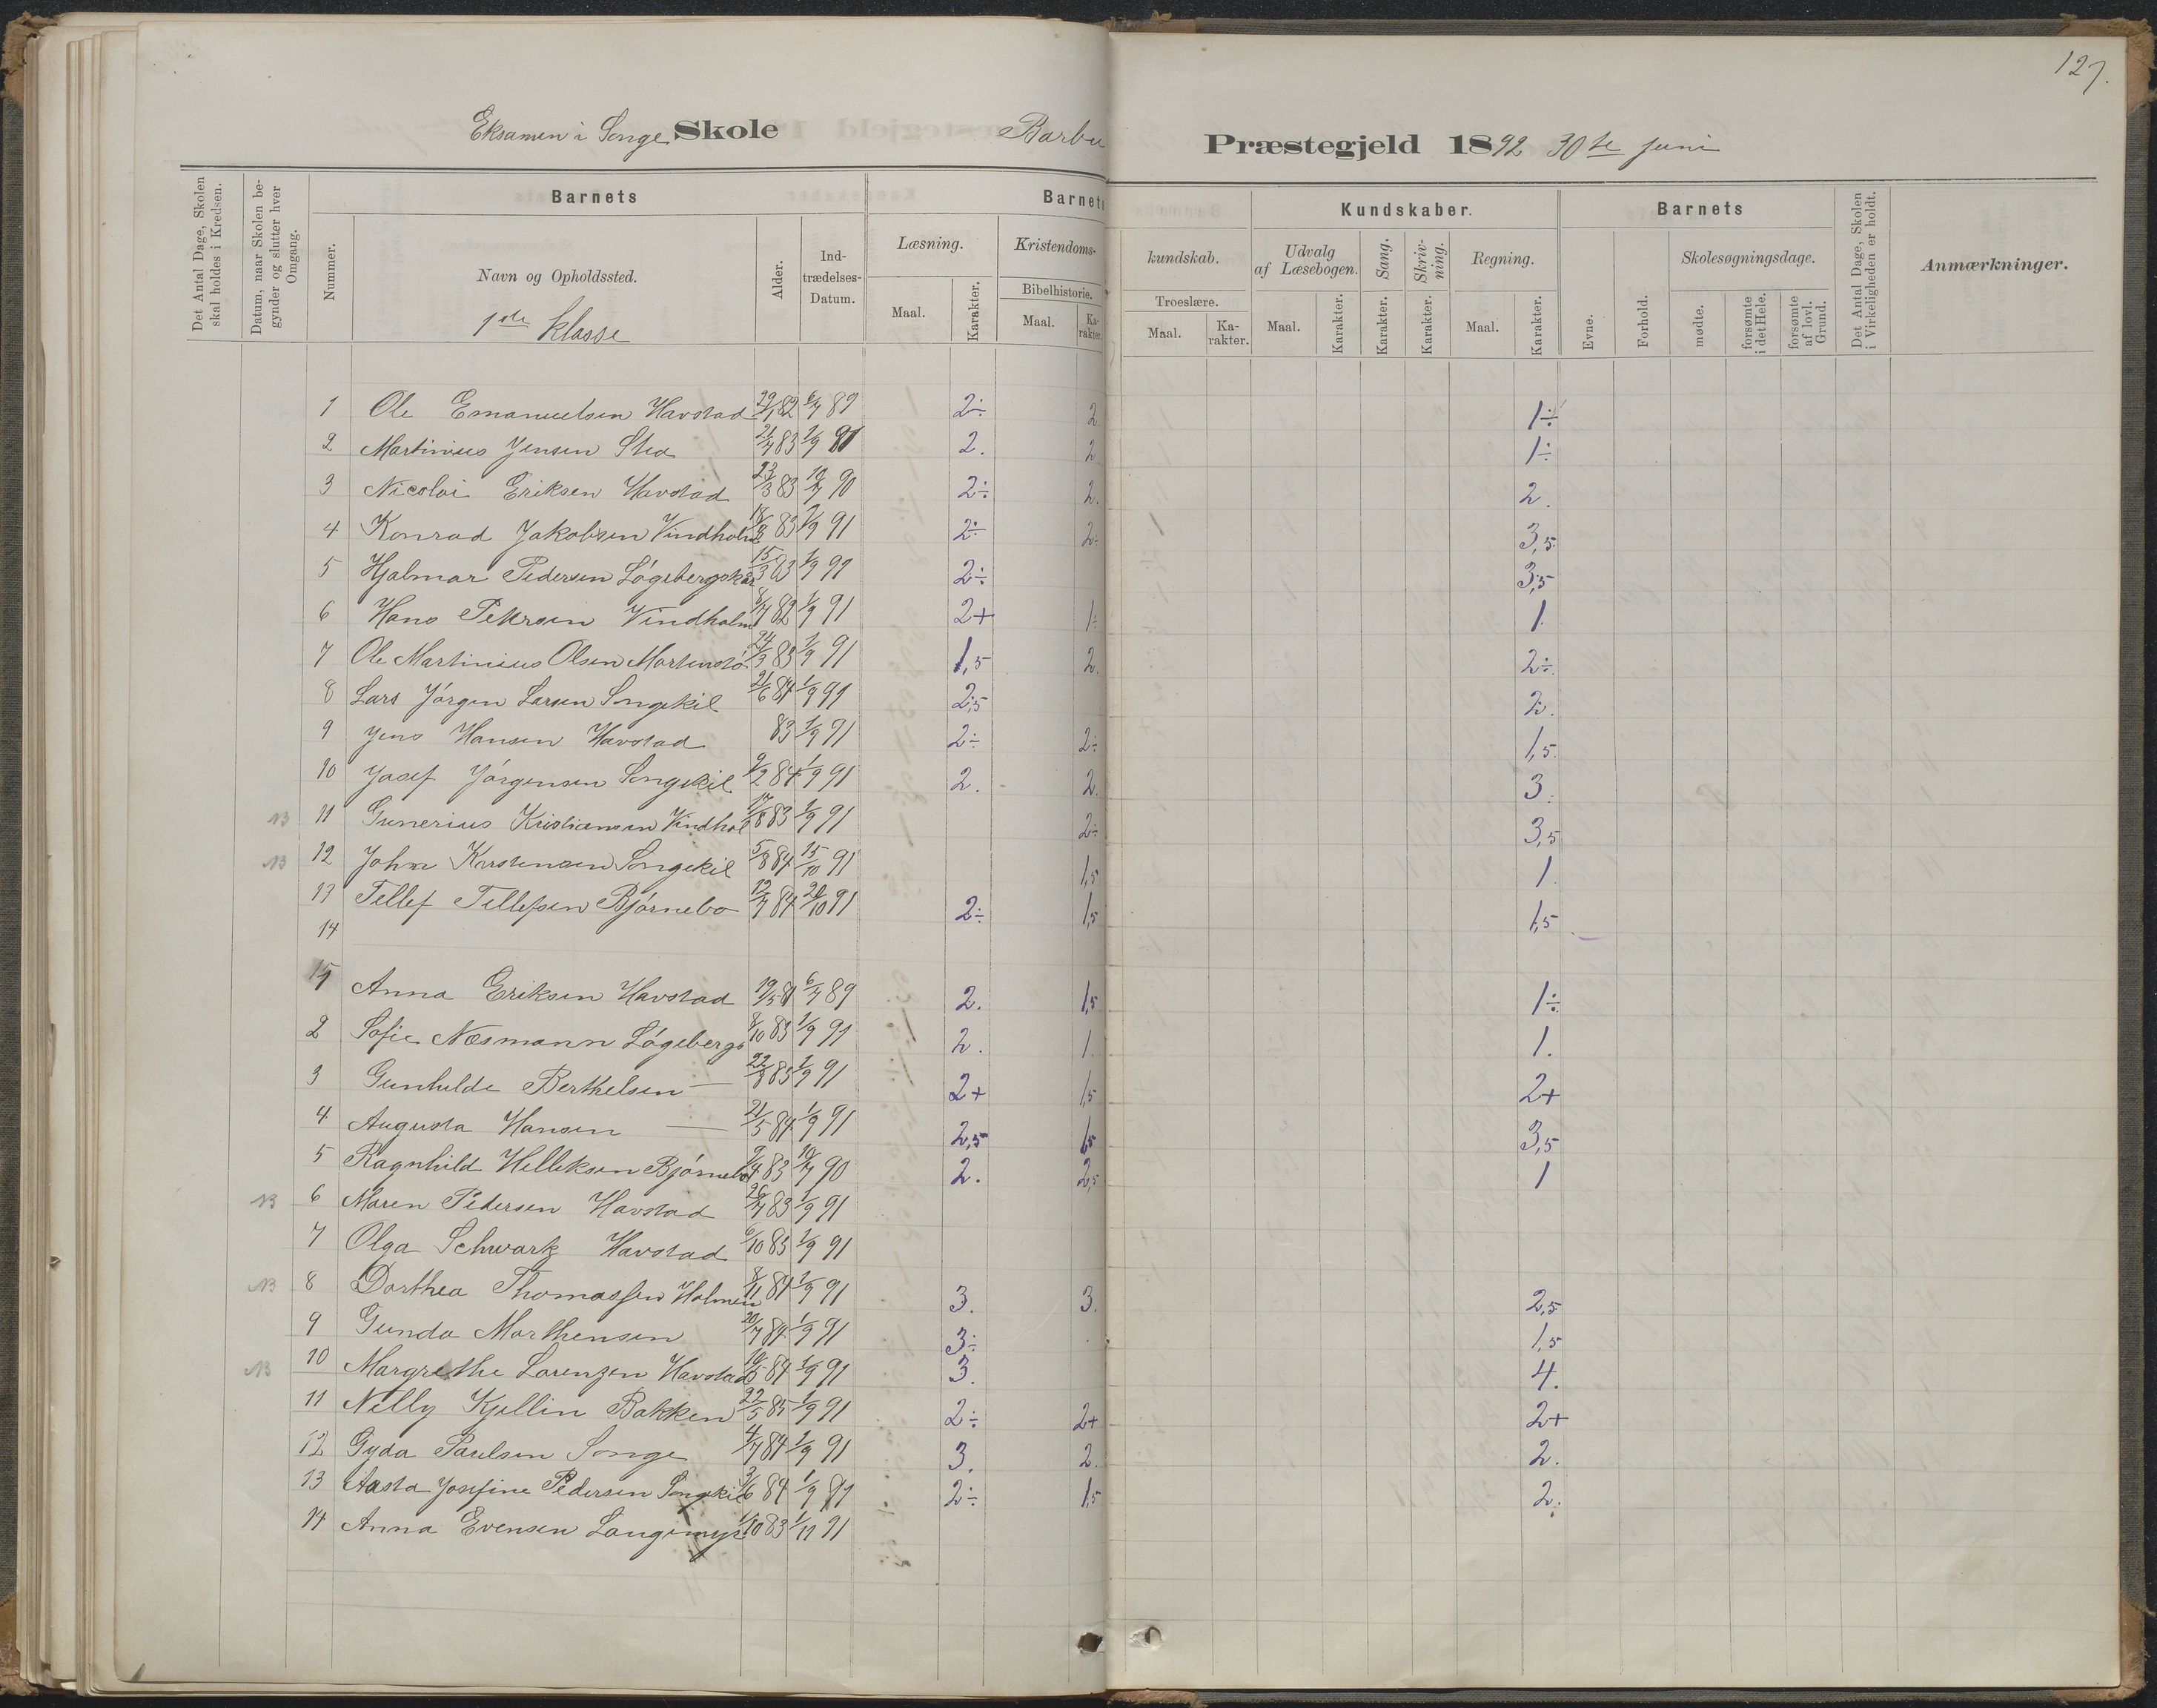 127.
Eksamen i Songe Skole Barbu Præstegjeld 1892 30te juni
Det Antal Dage, Skolen skal holdes i Kredsen.
Datum, naar Skolen begynder og slutter hver Omgang.
Barnets
Nummer.
Navn og Opholdssted.
1ste klasse
Alder.
Indtrædelses-Datum.
Barnets Kundskaber.
Læsning.
Maal.
Karakter.
Kristendomskundskab.
Bibelhistorie.
Maal.
Karakter.
Troeslære.
Maal.
Karakter.
Udvalg af Læsebogen.
Maal.
Karakter.
Sang.
Karakter.
Skrivning.
Karakter.
Regning.
Maal.
Karakter.
Barnets
Evne.
Forhold.
Skolesøgningsdage.
mødte.
forsømte i det Hele.
forsømte af lovl. Grund.
Det Antal Dage, Skolen i Virkeligheden er holdt.
Anmærkninger.
1 Ole Emanuelsen Havstad 29/7 82 6/7 89 2÷ 2 1÷
2 Martinius Jensen Stea 21/7 83 1/9 91 2. 2 1÷
3 Nicolai Eriksen Havstad 23/3 83 10/7 90 2÷ 2. 2.
4 Konrad Jakobsen Vindholm 83 1/9 91 2÷ 2÷ 3,5
5 Hjalmar Pedersen Løgebergskär 15/3 83 1/9 91 2÷ 3,5
6 Hans Petersen Vindholm 8/7 82 1/9 91 2+ 1÷ 1.
7 Ole Martinius Olsen Mortenstø 24/3 83 1/9 91 1,5 2. 2÷
8 Lars Jørgen Larsen Songekil 21/6 84 1/9 91 2,5 2.
9 Jens Hansen Havstad 83 1/9 91 2÷ 2÷ 1,5
10 Josef Jørgensen Songekil 9/2 84 1/9 91 2. 2. 3.
NB 11 Gunerius Kristiansen Vindhol 17/8 83 1/9 91 2÷ 3,5
NB 12 John Karstensen Songekil 5/8 84 15/10 91 1,5 1.
13 Tellef Tellefsen Bjørnebo 12/7 84 20/10 91 2÷ 1,5 1,5
14
1 Anna Eriksen Havstad 19/5 81 6/7 89 2. 1,5 1÷
2 Sofie Næsmann Løgebergs 8/10 83 1/9 91 2. 1. 1.
3 Gunhilde Berthelsen — 22/8 83 1/9 91 2+ 1,5 2+
4 Augusta Hansen — 21/5 84 1/9 91 2,5 1,5 3,5
5 Ragnhild Helleksen Bjørnebo 9/4 83 10/7 90 2. 2,5 1
NB 6 Maren Pedersen Havstad 26/7 83 1/9 91
7 Olga Schwartz Havstad 6/10 83 1/9 91
NB 8 Dorthea Thomassen Holmen 8/11 84 1/9 91 3. 3. 2,5
9 Gunda Morthensen 20/7 84 1/9 91 3÷ 1,5
NB 10 Margrethe Lorenzen Havstad 10/5 84 1/9 91 3. 4.
11 Nelly Kjellin Bakken 22/5 85 1/9 91 2÷ 2+ 2+
12 Gyda Paulsen Songe 4/7 84 1/9 91 3. 2. 2.
13 Aasta Josefine Pedersen Songekil 3/6 84 1/9 91 2÷ 1,5 2.
14 Anna Evensen Langemyr 1/10 83 1/11 91